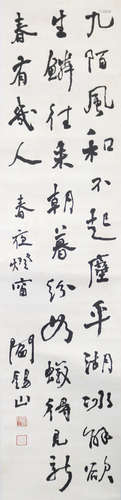 九陌風和不起塵平湖冰解欲
生鱗往來朝暮紛如蟻得見新
春有幾人 春夜燈窗 閻錫山